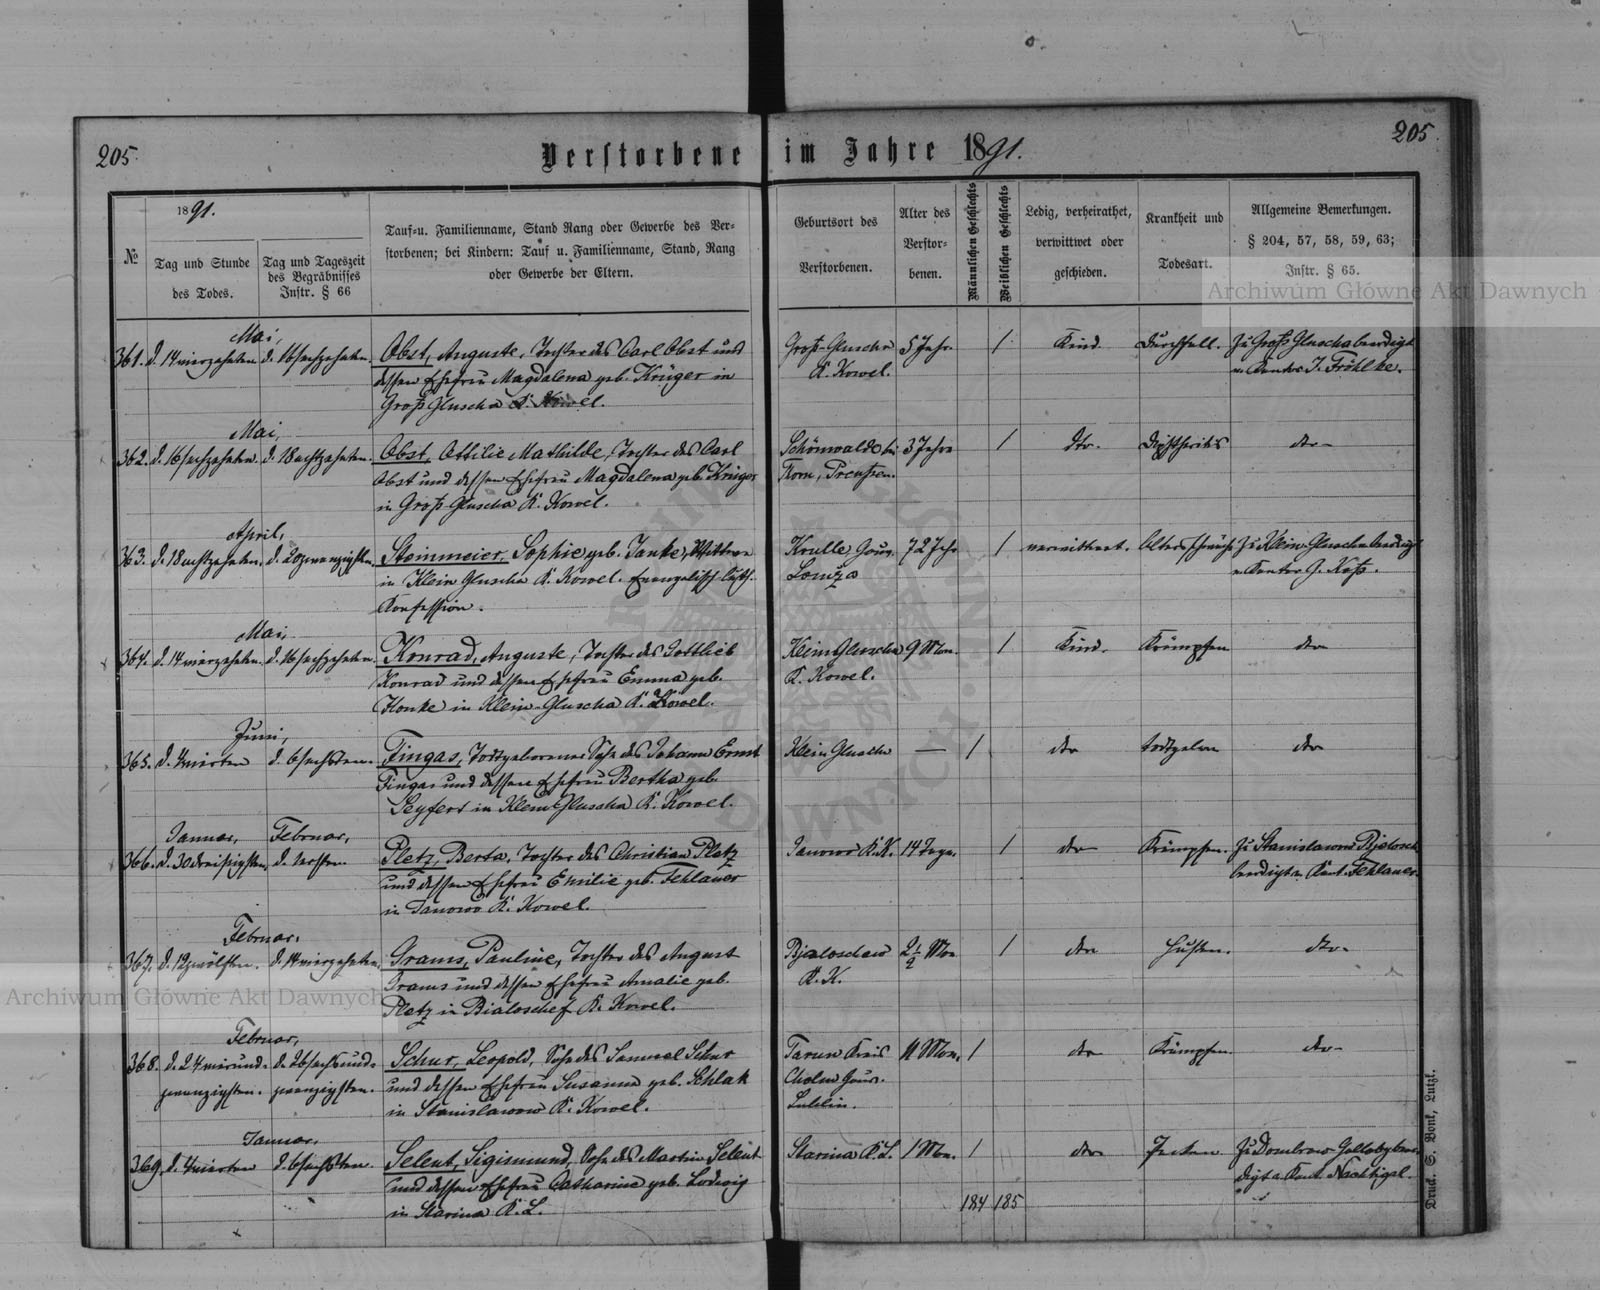 205.
205.
Verstorbene im Jahre 1891.
№
1891.
Tag und Stunde
des Todes.
Tag und Tageszeit
des Begräbnisses
Instr. § 66
Tauf=u. Familienname, Stand Rang oder Gewerbe des Ver=
storbenen; bei Kindern: Tauf u. Familienname, Stand, Rang
oder Gewerbe der Eltern.
Geburtsort des
Verstorbenen.
Alter des
Verstor=
benen.
Männlichen Geschlechts
Weiblichen Geschlechts
Ledig, verheirathet,
verwittwet oder
geschieden.
Krankheit und
Todesart.
Allgemeine Bemerkungen.
§ 204, 57, 58, 59, 63;
Instr. § 65.
Archiwum Główne Akt Dawnych
Mai,
361. d. 14 vierzehnten d. 16 sechzehnten. Obst, Auguste, Tochter des Carl Obst und
dessen Ehefrau Magdalena geb. Krüger in
Groß Gluscha K. Kowel.
Groß-Gluscha
K. Kowel.
5 Jahr
1
Kind
Durchfall.
Zu Groß Gluscha beerdigt
v. Kantor J. Fröhlke.
Mai,
362. d. 16 sechzehnten. d. 18 achtzehnten. Obst, Ottilie Mathilde, Tochter des Carl
Obst und dessen Ehefrau Magdalena geb. Krüger
in Groß-Gluscha K. Kowel.
Schönwalde bei
Thorn, Preußen.
3 Jahre
1
dto.
Diphtheritis
dto
April,
363. d. 18 achtzehnten. d. 20 zwanzigsten. Steinmeier, Sophie geb. Janke, Wittwe
in Klein Gluscha K. Kowel. Evangelisch luth.
Konfession.
Krulle Gouv.
Lomza
72 Jahr
1
verwittwet.
Altersschwäche
Zu Klein-Gluscha beerdigt
v. Kantor G. Koß.
Mai,
364. d. 14 vierzehnten. d. 16 sechzehnten. Konrad, Auguste, Tochter des Gottlieb
Konrad und dessen Ehefrau Emma geb.
Honke in Klein-Gluscha K. Kowel.
Klein Gluscha
K. Kowel.
9 Mon.
1
Kind.
Krämpfen
dto
Juni,
365. d. 4 vierten d. 6 sechsten. Fingas, Todtgeborener Sohn des Johann Ernst
Fingas und dessen Ehefrau Bertha geb.
Seyfert in Klein Gluscha K. Kowel.
Klein Gluscha
—
1
dto
todtgeboren
dto
Januar, Februar,
366. d. 30 dreißigsten, d. 1 ersten Pletz, Berta, Tochter des Christian Pletz
und dessen Ehefrau Emilie geb. Fehlauer
in Janowo K. Kowel.
Janowo K.K.
14 Tage.
1
dto
Krämpfen.
Zu Stanislawow
beerdigt v. Kant. Fehlauer.
Februar.
367. d. 12 zwölften. d. 14 vierzehnten. Grams, Pauline, Tochter des August
Grams und dessen Ehefrau Amalie geb.
Pletz in Bialoschef K. Kowel.
Bjaloschew
K. K.
2 1/2 Mon
1
dto
Husten.
dto.
Archiwum Główne Akt Dawnych
Februar,
368. d. 24 vierund= d. 26 sechsund= Schur, Leopold, Sohn des Samuel Schur
zwanzigsten. zwanzigsten. und dessen Ehefrau Susanna geb. Schlak
in Stanislawow K. Kowel.
Tarun Kreis
Cholm Gouv.
Lublin.
11 Mon.
1
dto
Krämpfen.
dto
Januar.
369. d. 4 vierten d. 6 sechsten. Selent, Sigismund, Sohn des Martin Selent
und dessen Ehefrau Catharine geb. Ludwig
in Starina K. L.
Starina K. L.
1 Mon.
1
dto
184 185
Druck. S. Bonk, Lutzk.